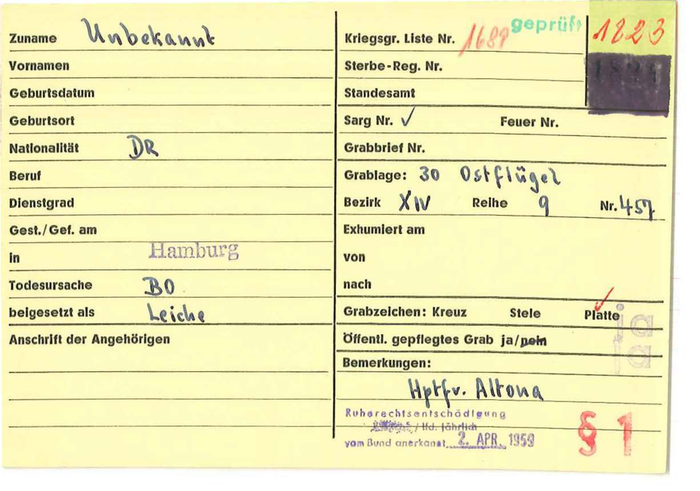 Zuname Unbekannt
Vornamen
Geburtsdatum
Geburtsort
Nationalität DR
Beruf
Dienstgrad
Gest./Gef. am
in Hamburg
Todesursache BO
beigesetzt als Leiche
Anschrift der Angehörigen
geprüft 1823
Kriegsgr. Liste Nr. 1689
Sterbe-Reg. Nr.
Standesamt
Sarg Nr. ✓ Feuer Nr.
Grabbrief Nr.
Grablage: 30 Ostflügel
Bezirk XIV Reihe 9 Nr. 457
Exhumiert am
von
nach
Grabzeichen: Kreuz Stele Platte
ja
Öffentl. gepflegtes Grab ja/nein
ja
Bemerkungen:
Hptfr. Altona
Ruherechtsentschädigung
/ lfd. jährlich
vom Bund anerkannt 2. APR. 1959
§ 1